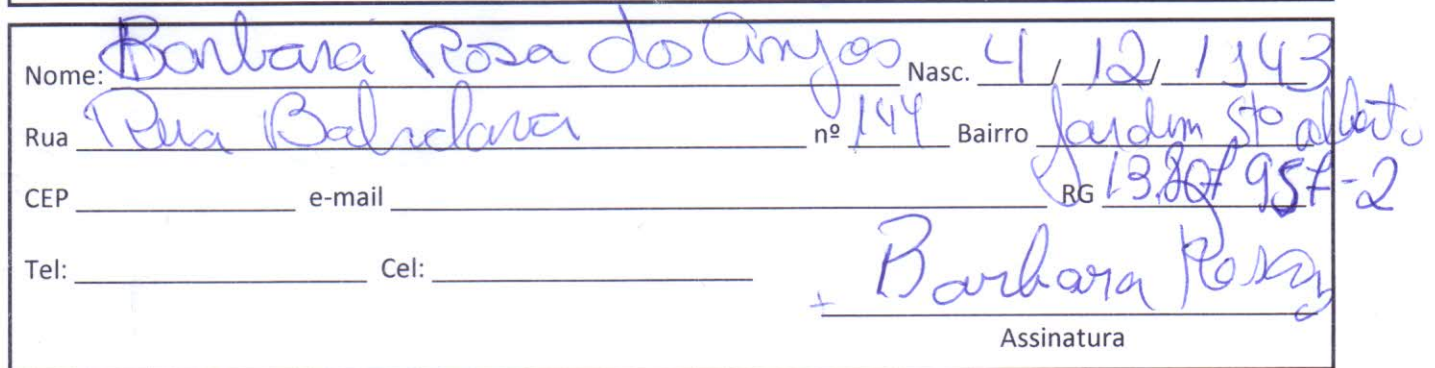 Nome: Barbara Rosa dos Anjos Nasc. 4 / 12 / 1943
Rua Rua nº 144 Bairro Jardim Stº alberto
CEP e-mail RG 13.807 957-2
Tel: Cel: Barbara Rosa
Assinatura